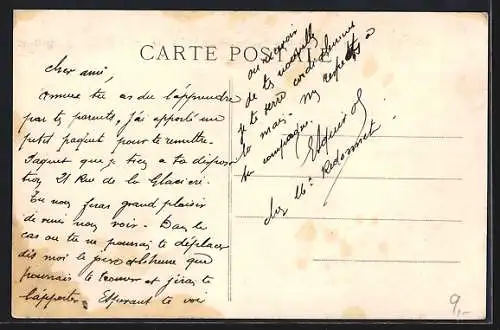 CARTE POSTALE
cher ami,
comme tu as du l'apprendre
par tes parents, j'ai apporté un
petit paquet pour te remettre.
Paquet que je tiens a ta disposi
tion 21 Rue de la Glacière.
Tu nous feras grand plaisir
de venir nous voir. Dans le
cas ou tu ne pourrais te déplacer
dis moi le jour et l'heure que
pourrais te trouver et j'irai te
l'apporter. Esperant te voir
ou recevoir
de tes nouvelles
je te serre cordialement
la main. Mes respects a
ta compagne.
chez Mr Redonnet
9,-